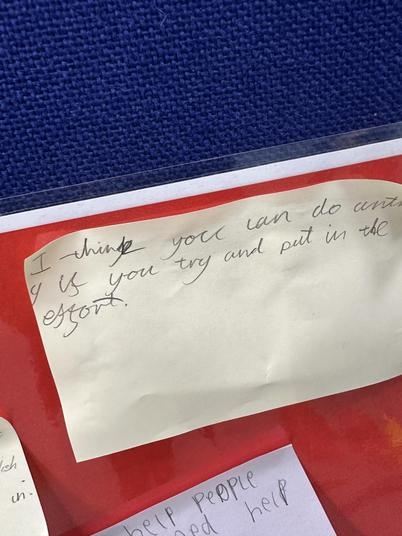 I think you can do anth
y if you try and put in the
effort.
ch
in.
help people
need help